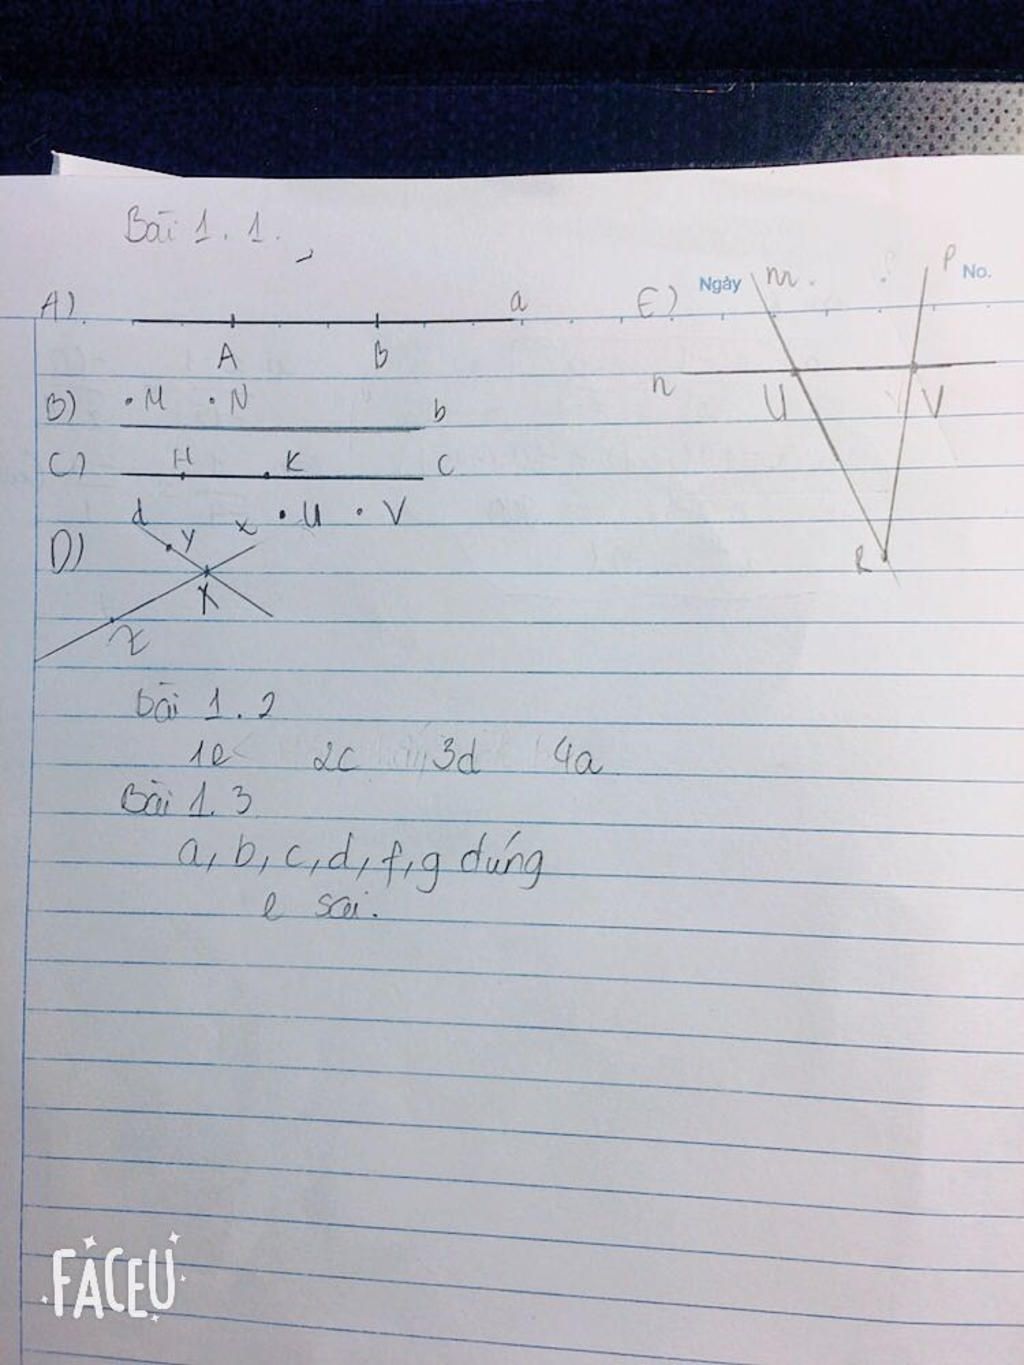 Bài 1.1.
A) a
A B
B) M N b
C) H K C
U V
D) d y x
X
Z
E) Ngày m P No.
n U V
R
bài 1.2
1e 2c 3d 4a
Bài 1.3
a, b, c, d, f, g đúng
e sai.
FACEU